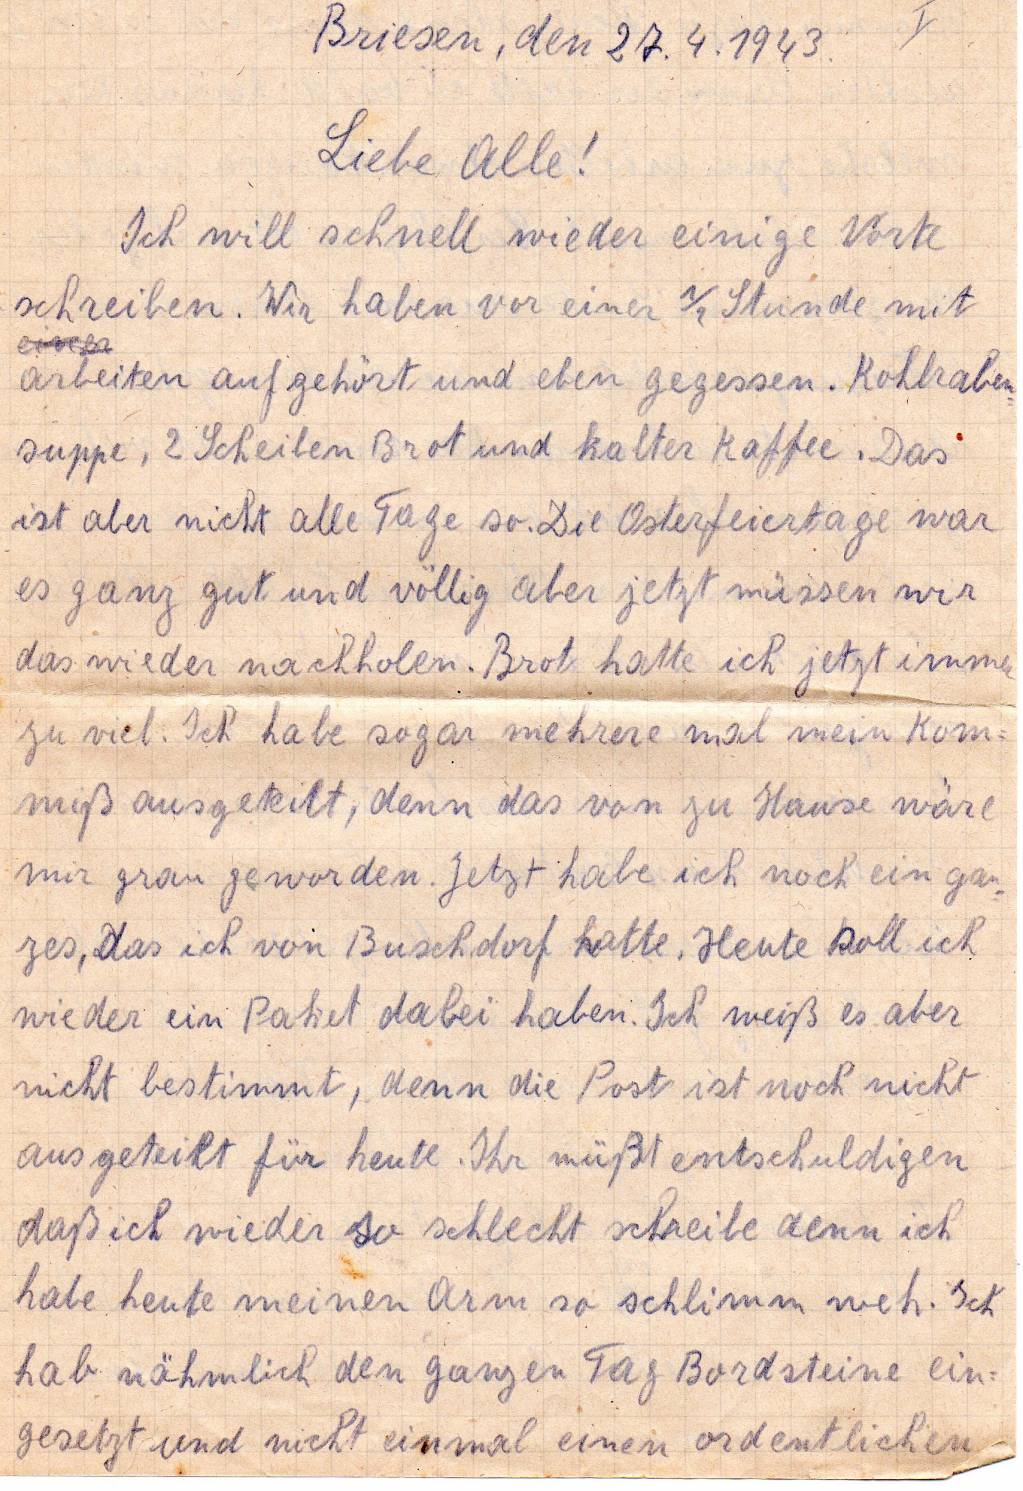 Briesen, den 27.4.1943. I
Liebe Alle!
Ich will schnell wieder einige Worte
schreiben. Wir haben vor einer 1/2 Stunde mit
einer
arbeiten aufgehört und eben gegessen. Kohlraben=
suppe, 2 Scheiben Brot und kalter Kaffee. Das
ist aber nicht alle Tage so. Die Osterfeiertage war
es ganz gut und völlig aber jetzt müssen wir
das wieder nachholen. Brot hatte ich jetzt immer
zu viel. Ich habe sogar mehrere mal mein Kom=
miß ausgeteilt, denn das von zu Hause wäre
mir grau geworden. Jetzt habe ich noch ein gan=
zes, das ich von Buschdorf hatte. Heute soll ich
wieder ein Paket dabei haben. Ich weiß es aber
nicht bestimmt, denn die Post ist noch nicht
ausgeteilt für heute. Ihr müßt entschuldigen
daß ich wieder so schlecht schreibe denn ich
habe heute meinen Arm so schlimm weh. Ich
hab nähmlich den ganzen Tag Bordsteine ein=
gesetzt und nicht einmal einen ordentlichen